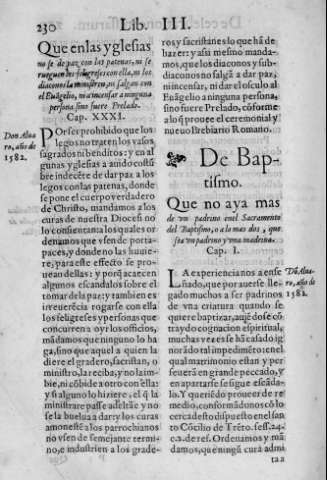 230 Lib. III.
Que en las yglesias
no se de paz con las patenas, ni se
rueguen los feligreses con ella, ni los
diaconos la ministren, ni salgan con
el Euãgelio, ni a incensar a ninguna
persona sino fuere Prelado.
Cap. XXXI.
Don Alua
ro, año de
1582.
POr ser prohibido que los
legos no traten los vasos
sagrados ni benditos: y en al
gunas yglesias a auido costũ
bre indecẽte de dar paz a los
legos con las patenas, donde
se pone el cuerpo verdadero
de Christo, mandamos a los
curas de nuestra Diocesis no
lo consientan a los quales or
denamos que vsen de porta-
paces, y donde no las huuie-
re, para este effecto se pro-
uean dellas: y porq̃ acaecen
algunos escandalos sobre el
tomar de la paz: y tambien es
irreuerẽcia rogarse con ella
los feligreses y personas que
concurren a oyr los officios,
mãdamos que ninguno lo ha
ga, sino que aquel a quien la
diere el gradero, sacristan, o
ministro, la reciba, y no la im-
bie, ni cõbide a otro con ella:
y si alguno lo hiziere, el q̃ la
ministrare passe adelãte y no
se la buelua a dar y los curas
amonestẽ a los parrochianos
no vsen de semejante termi-
no, e industrien a los grade-
ros y sacristanes lo que hã de
hazer: y assi mesmo manda-
mos, que los diaconos y sub-
diaconos no salgã a dar paz,
ni incensar, ni dar el osculo al
Euãgelio a ninguna persona,
sino fuere Prelado, cõforme
a lo q̃ prouee el ceremonial y
nueuo Breuiario Romano.
De Bap-
tismo.
Que no aya mas
de vn padrino en el Sacramento
del Baptismo, o a lo mas dos, que
sea vn padrino y vna madrina.
Cap. I.
Dõ Alua
ro, año de
1582.
LA experiencia nos a ense
ñado, que por auerse lle-
gado muchos a ser padrinos
de vna criatura quando se
quiere baptizar, auiẽdose cõ
traydo cognacion espiritual,
muchas vezes se hã casado ig
norãdo tal impedimẽto: en el
qual matrimonio estan y per
seuerã en grande peccado, y
en apartarse se sigue escãda-
lo. Y queriẽdo proueer de re
medio, conformãdonos con
lo establecido en esto en el san
to Cõcilio de Trẽto. sess. 24.
c. 2. de ref. Ordenamos y mã
damos, que en el Sacramen-
to